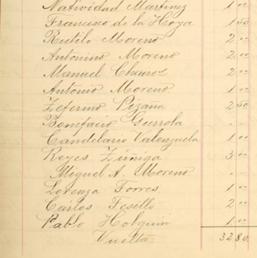 Natividad Martinez 1 00
Francisco de la Hoya 1 50
Rutilo Moreno 2 00
Antonino Moreno 2 00
Manuel 2 00
Antonio Moreno 2 00
Zeferino 2 50
Bonifacio Gurrola
Candelario Valenzuela 1 00
Reyes Zuniga 3 00
Miguel A. Moreno
Lorenza Torres 1 00
Carlos 2 00
Pablo Holguin 1 00
Vuelta 32 80